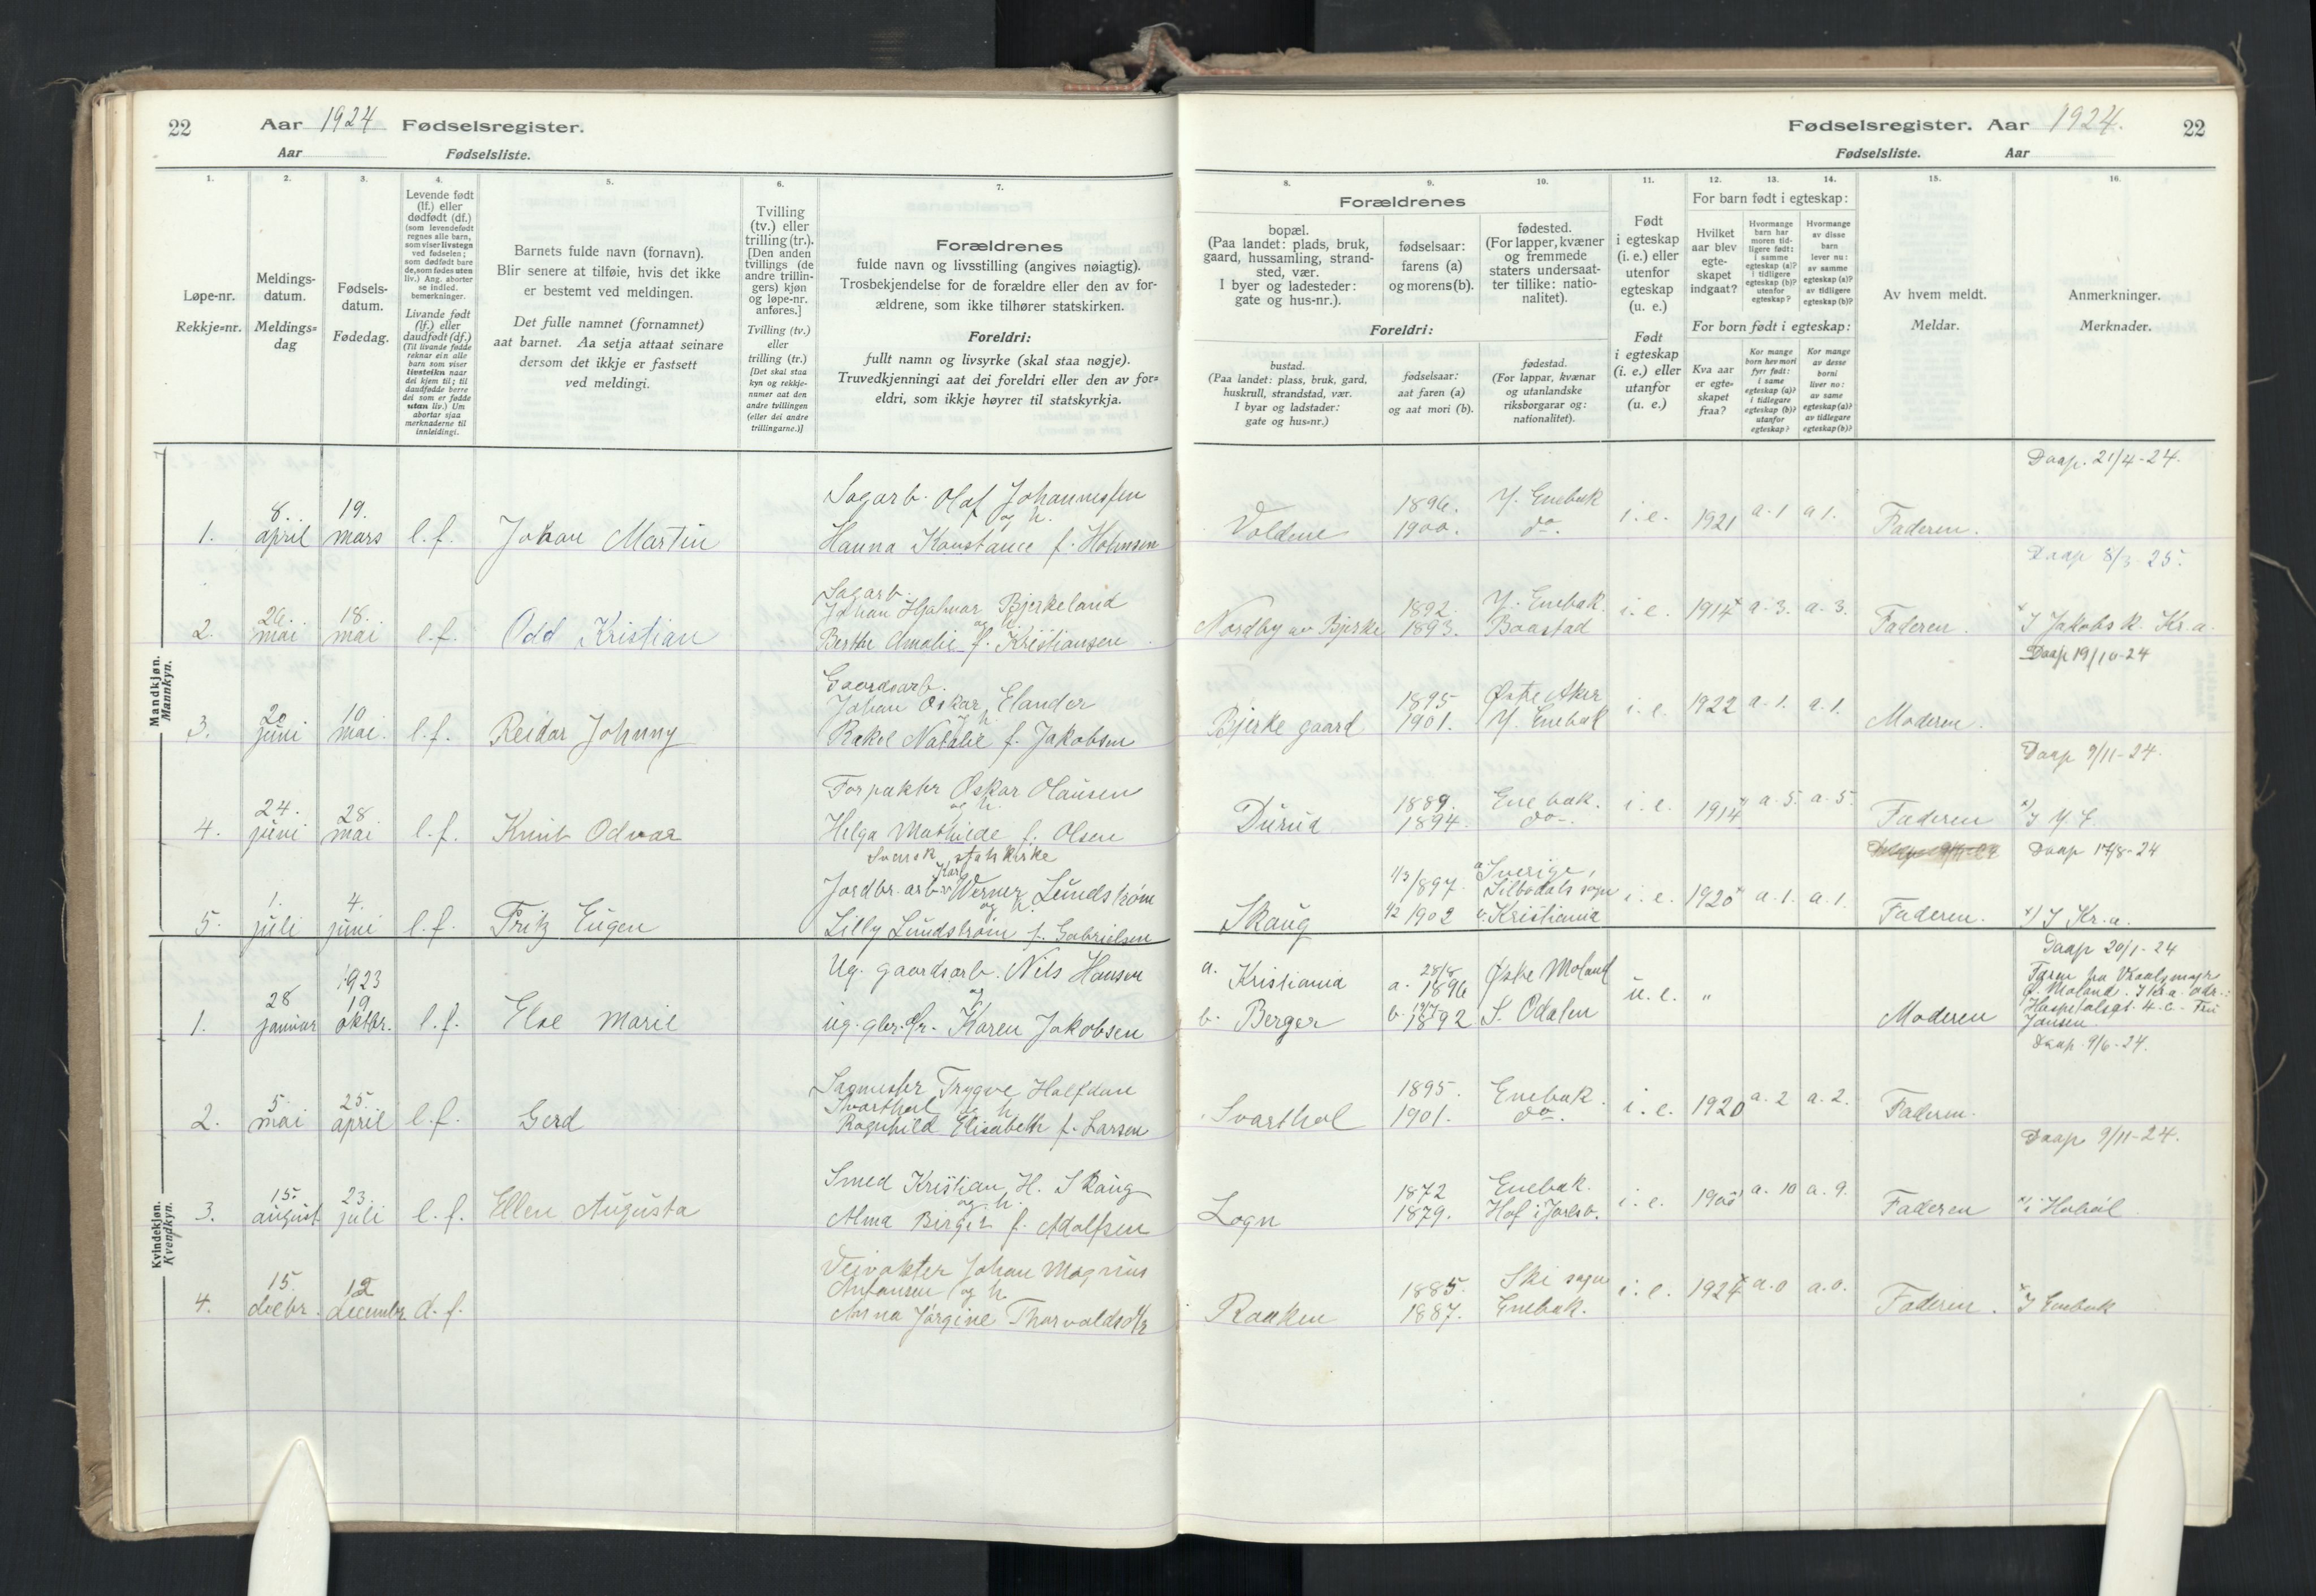 22 Aar 1924 Fødselsregister.
Aar Fødselsliste.
1.
Løpe-nr.
Rekkje=nr.
2.
Meldings-
datum.
Meldings=
dag
3.
Fødsels-
datum.
Fødedag.
4.
Levende født
(lf.) eller
dødfødt (df.)
(som levendefødt
regnes alle barn,
som viser livstegn
ved fødselen;
som dødfødt bare
de, som fødes uten
liv.) Ang. aborter
se indled.
bemerkninger.
Livande født
(lf.) eller
daudfødt (df.)
(Til livande fødde
reknar ein alle
barn som viser
livsteikn naar
dei kjem til; til
daudfødde berre
dei som er fødde
utan liv.) Um
abortar sjaa
merknaderne til
innleidingi.
5.
Barnets fulde navn (fornavn).
Blir senere at tilføie, hvis det ikke
er bestemt ved meldingen.
Det fulle namnet (fornamnet)
aat barnet. Aa setja attaat seinare
dersom det ikkje er fastsett
ved meldingi.
6.
Tvilling
(tv.) eller
trilling (tr.).
[Den anden
tvillings (de
andre trillin-
gers) kjøn
og løpe-nr.
anføres.]
Tvilling (tv.)
eller
trilling (tr.)
[Det skal staa
kyn og rekkje-
numer aat den
andre tvillingen
(eller dei andre
trillingarne.)]
7.
Forældrenes
fulde navn og livsstilling (angives nøiagtig).
Trosbekjendelse for de forældre eller den av for-
ældrene, som ikke tilhører statskirken.
Foreldri:
fullt namn og livsyrke (skal staa nøgje).
Truvedkjenningi aat dei foreldri eller den av for=
eldri, som ikkje høyrer til statskyrkja.
Mandkjøn.
Mannkyn.
1. 8. april 19. mars l.f. Johan Martin
Sagarb. Olaf Johannessen
og h.
Hanna Konstance f. Holmsen
2. 26. mai 18. mai l.f. Odd Kristian
Sagarb.
Johan Hjalmar Bjerkeland
og h.
Berthe Amalie f. Kristiansen
3. 20 juni 10 mai. l.f. Reidar Johnny
Gaardsarb.
Johan Oskar Elander
og h.
Rakel Natalie f. Jakobsen
4. 24. juni 28 mai l.f. Knut Odvar
Forpakter Oskar Olausen
og h.
Helga Mathilde f. Olsen
5. 1. juli 4. juni l.f. Fritz Eugen
Svensk statskirke
Karl
Jordbr. arb. Werner Lundstrøm
og h.
Lilly Lundstrøm f. Gabrielsen
Kvindekjøn.
Kvendkyn.
1. 28 januar 1923 19 oktbr. l.f. Else Marie
Ug. gaardsarb. Nils Hansen
og
ug. gbr. dtr. Karen Jakobsen
2. 5. mai 25. april l.f. Gerd
Sagmester Trygve Halfdan
Svarthol og h.
Ragnhild Elisabeth f. Larsen
3. 15. august 23. juli l.f. Ellen Augusta
Smed Kristian H. Skaug
og h.
Alma Birgit f. Adolfsen
4. 15. decbr. 12 december d.f.
Veivokter Johan Magnus
Antonsen og h.
Anna Jørgine Thorvaldsdtr
Fødselsregister. Aar 1924. 22
Fødselsliste. Aar
8.
Forældrenes
bopæl.
(Paa landet: plads, bruk,
gaard, hussamling, strand-
sted, vær.
I byer og ladesteder:
gate og hus-nr.).
Foreldri:
bustad.
(Paa landet: plass, bruk, gard,
huskrull, strandstad, vær.
I byar og ladstader:
gate og hus=nr.)
9.
fødselsaar:
farens (a)
og morens (b).
fødselsaar:
aat faren (a)
og aat mori (b).
10.
fødested.
(For lapper, kvæner
og fremmede
staters undersaat-
ter tillike: natio-
nalitet).
fødestad.
(For lappar, kvænar
og utanlandske
riksborgarar og:
nationalitet).
11.
Født
i egteskap
(i. e.) eller
utenfor
egteskap
(u. e.)
Født
i egteskap
(i. e.) eller
utanfor
(u. e.)
For barn født i egteskap:
12.
Hvilket
aar blev
egte-
skapet
indgaat?
13.
Hvormange
barn har
moren tid-
ligere født:
i samme
egteskap (a)?
i tidligere
egteskap (b)?
utenfor
egteskap?
14.
Hvormange
av disse
barn
lever nu:
av samme
egteskap (a)?
av tidligere
egteskap (b)?
For born født i egteskap:
Kva aar
er egte-
skapet
fraa?
Kor mange
born hev mori
fyrr født:
i same
egteskap (a)?
i tidlegare
egteskap (b)?
utanfor
egteskap?
Kor mange
av desse
borni
liver no:
av same
egteskap (a)?
av tidlegare
egteskap (b)?
15.
Av hvem meldt.
Meldar.
16.
Anmerkninger.
Merknader.
Daap. 21/4-24.
Voldene 1896. 1900. Y. Enebak do. i.e. 1921 a.1 a1. Faderen.
Daap 8/3 25.
Nordby av Bjerke 1892. 1893. Y. Enebak. Baastad i.e. 1914x a.3. a.3. Faderen. x I Jakobs k. Kr.a.
Daap 19/10-24
Bjerke gaard 1895 1901. Østre Aker Y. Enebak i.e. 1922 a.1. a.1. Moderen.
Daap 9/11-24.
Durud 1889. 1894. Enebak. do. i.e. 1914x a.5. a.5. Faderen x) I Y. E.
Daap 17/8-24
Skaug 1897. 1902 a Sverige, Silbodals sogn b. Kristiania i.e. 1920x a.1. a.1. Faderen. x) I Kr.a.
Daap 20/1-24
a. Kristiania a. 28/8 1896 Østre Moland
b. Berger b. 1892 S. Odalen u.e. " Moderen
Jansen.
Daap. 9/6-24.
Svarthol 1895. 1901. Enebak. do. i.e. 1920 a.2 a.2. Faderen.
Daap. 9/11-24.
Logn 1872 1879. Enebak. Hof i Jarlsb. i.e. a. 10 a. 9. Faderen x) i Hobøl.
Raaken 1885. 1887. Ski sogn Enebak. i.e. 1924x a.0 a.0. Faderen. x I Enebak